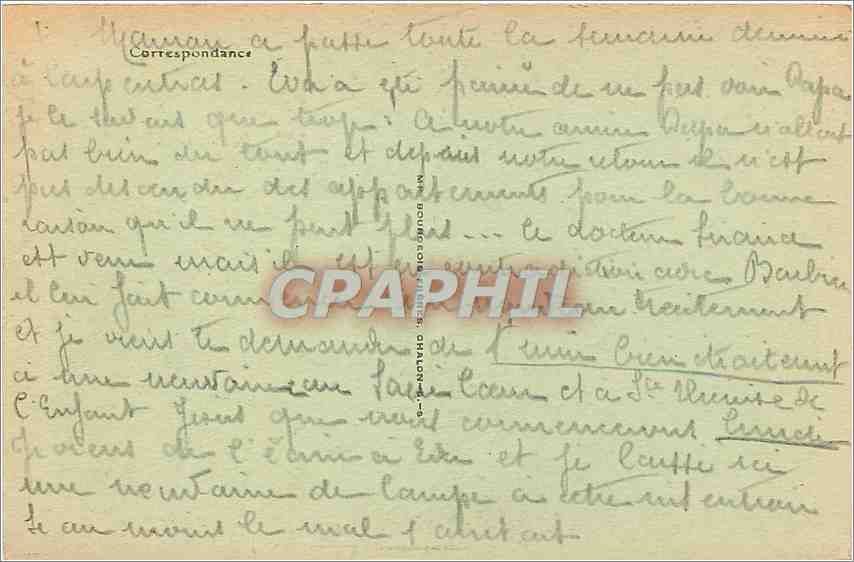 Maman a passé toute la semaine dernière
Correspondance
à Carpentras. Eva a été peinée de ne pas voir Papa
je le savais que trop : à notre arrivée Papa n'allait
pas bien du tout et depuis notre retour il n'est
pas descendu des appartements pour la bonne
raison qu'il ne peut plus ... le docteur
est venu mais il est en contradiction avec Barbier
il lui fait commencer un nouveau traitement
et je viens te demander de t'unir bien étroitement
à une neuvaine au Sacré Cœur et à Ste Thérèse de
l'Enfant Jésus que nous commencerons lundi
je viens de l'écrire à Eva et je laisse ici
une neuvaine de lampe à cette intention
Si au moins le mal s'arrêtait
MM. BOURGEOIS FRÈRES, CHALON-S.-S
CPAPHIL